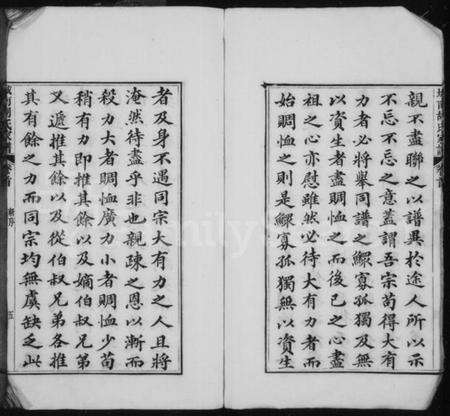 親不盡聯之以譜異於途人所以示
不忘不忘之意蓋謂吾宗苟得大有
力者必將舉同譜之鰥寡孤獨及無
以資生者盡賙恤之而後已之心盡
祖之心亦慰雖然必待大有力者而
始賙恤之則是鰥寡孤獨無以資生
者及身不遇同宗大有力之人且將
淹然待盡乎非也親疎之恩以漸而
殺力大者賙恤廣力小者賙恤少苟
稍有力即推其餘以及嫡伯叔兄弟
又遞推其餘以及從伯叔兄弟各推
其有餘之力而同宗均無虞缺乏此
五